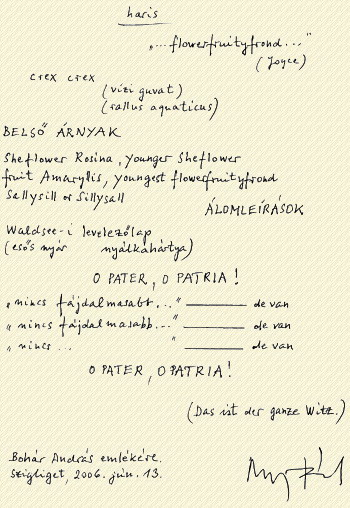 haris
„...flowerfruityfrond..."
(Joyce)
crex crex
(vízi guvat)
(rallus aquaticus)
BELSŐ ÁRNYAK
Sheflower Rosina, younger Sheflower
fruit Amarylis, youngest flowerfruityfrond
Sallysill or Sillysall
ÁLOMLEÍRÁSOK
Waldsee-i levelezőlap
(esős nyár nyálkahártya)
O PATER, O PATRIA!
„nincs fájdalmasabb..." ______ de van
„nincs fájdalmasabb..." ______ de van
„nincs ... " ______ de van
O PATER, O PATRIA!
(Das ist der ganze Witz.)
Bohár András emlékére.
Szigliget, 2006. jún. 13.